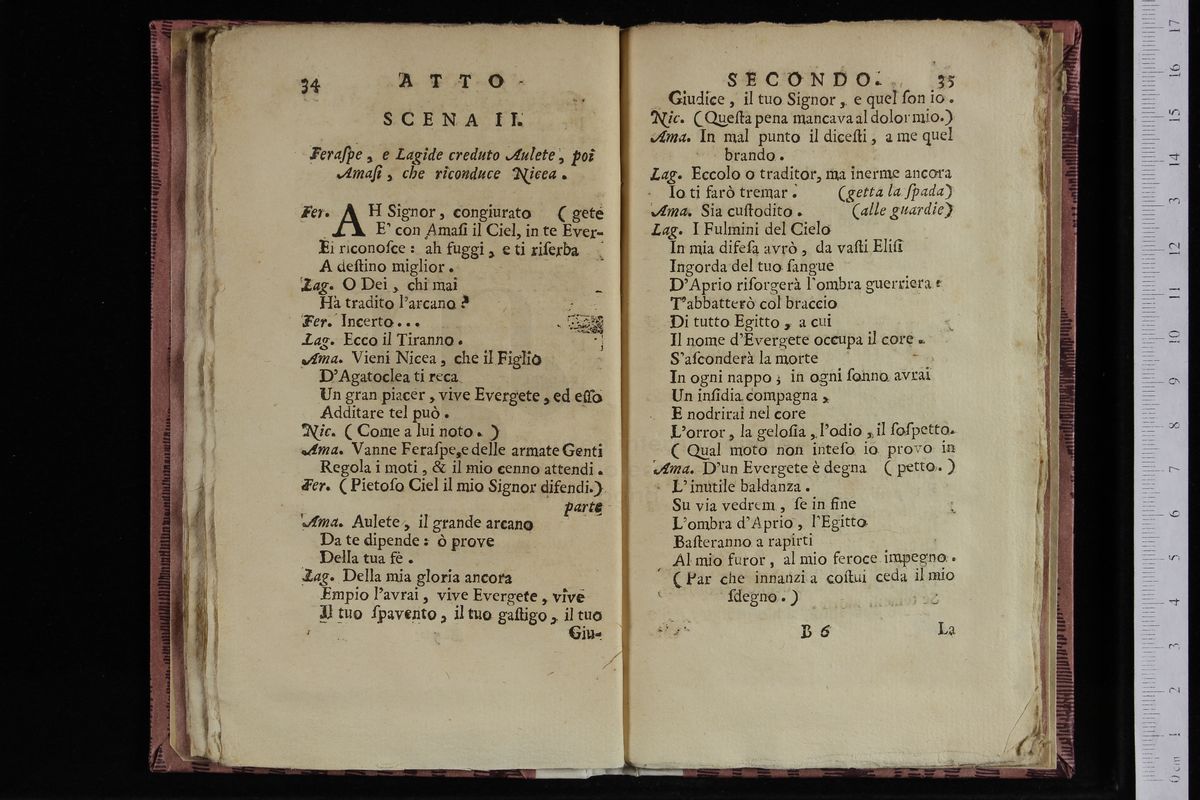 34 ATTO
SCENA II.
Feraſpe, e Lagide creduto Aulete, poi
Amaſi, che riconduce Nicea.
Fer. AH Signor, congiurato (gete
E' con Amaſi il Ciel, in te Ever-
Ei riconoſce: ah fuggi, e ti riſerba
A deſtino miglior.
Lag. O Dei, chi mai
Hà tradito l'arcano?
Fer. Incerto...
Lag. Ecco il Tiranno.
Ama. Vieni Nicea, che il Figlio
D'Agatoclea ti reca
Un gran piacer, vive Evergete, ed eſſo
Additare tel può.
Nic. (Come a lui noto.)
Ama. Vanne Feraſpe, e delle armate Genti
Regola i moti, & il mio cenno attendi.
Fer. (Pietoſo Ciel il mio Signor difendi.)
parte
Ama. Aulete, il grande arcano
Da te dipende: ò prove
Della tua fè.
Lag. Della mia gloria ancora
Empio l'avrai, vive Evergete, vive
Il tuo ſpavento, il tuo gaſtigo, il tuo
Giu-
SECONDO. 35
Giudice, il tuo Signor, e quel ſon io.
Nic. (Queſta pena mancava al dolor mio.)
Ama. In mal punto il diceſti, a me quel
brando.
Lag. Eccolo o traditor, ma inerme ancora
Io ti farò tremar. (getta la ſpada)
Ama. Sia cuſtodito. (alle guardie)
Lag. I Fulmini del Cielo
In mia difeſa avrò, da vaſti Eliſi
Ingorda del tuo ſangue
D'Aprio riſorgerà l'ombra guerriera
T'abbatterò col braccio
Di tutto Egitto, a cui
Il nome d'Evergete occupa il core.
S'aſconderà la morte
In ogni nappo; in ogni ſonno avrai
Un inſidia compagna,
E nodrirai nel core
L'orror, la geloſia, l'odio, il ſoſpetto.
( Qual moto non inteſo io provo in
Ama. D'un Evergete è degna (petto.)
L'inutile baldanza.
Su via vedrem, ſe in fine
L'ombra d'Aprio, l'Egitto
Baſteranno a rapirti
Al mio furor, al mio feroce impegno.
(Par che innanzi a coſtui ceda il mio
ſdegno.)
B 6 La
0 cm 1 2 3 4 5 6 7 8 9 10 11 12 13 14 15 16 17